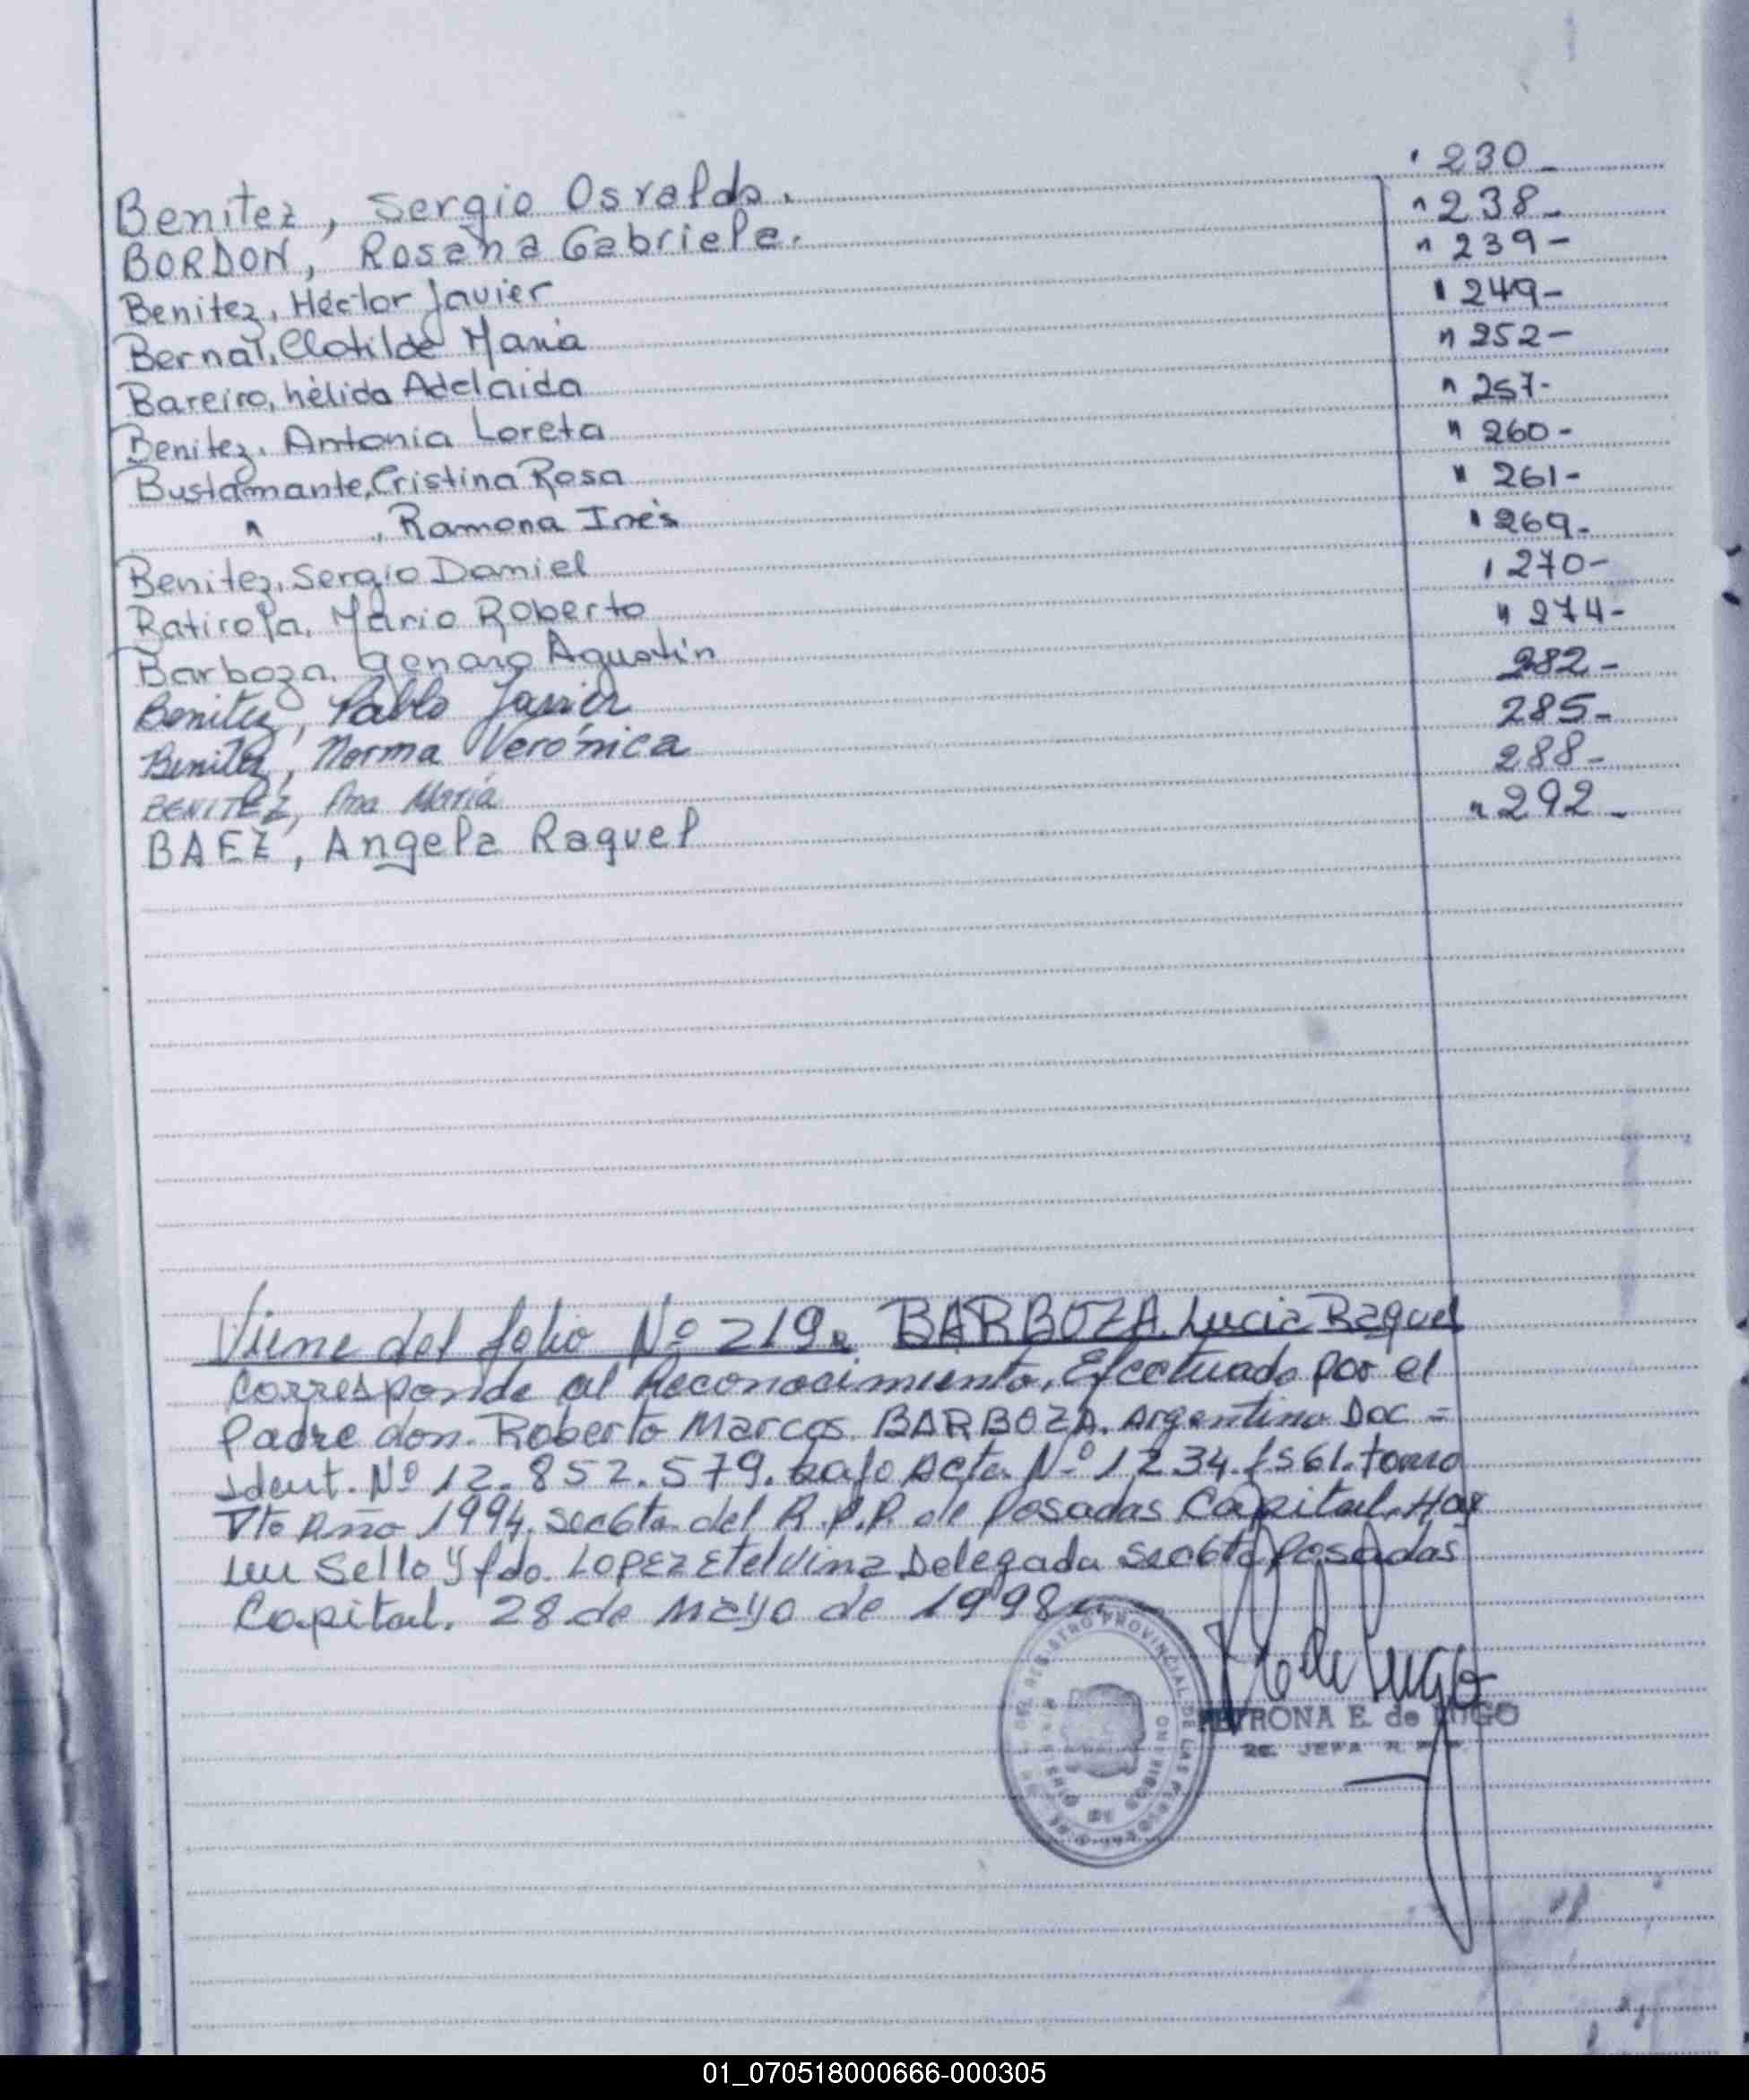 Benitez, Sergio Osvaldo. " 230-
BORDON, Rosana Gabriela. " 238-
Benitez, Héctor Javier " 239-
Bernal, Clotilde Maria " 249-
Bareiro, hélida Adelaida " 252-
Benitez, Antonia Loreta " 257-
Bustamante, Cristina Rosa " 260-
" , Ramona Inés " 261-
Benitez, Sergio Daniel " 269-
Batirola, Mario Roberto " 270-
Barboza, Genaro Agustín " 274-
Benitez, Pablo Javier 282-
Benitez, Norma Verónica 285-
BENITEZ, Ana María 288-
BAEZ, Angela Raquel " 292-
Viene del folio Nº 219. BARBOZA, Lucia Raquel
Corresponde al Reconocimiento, Efectuado por el
Padre don. Roberto Marcos BARBOZA. Argentino Doc =
Ident. Nº 12.852.579. bajo Acta Nº 1234. fs 61. tomo
Vto Año 1994. secc 6ta del R.P.P. de Posadas Capital. Hay
un Sello y fdo. LOPEZ ETELVINA Delegada secc 6ta Posadas
Capital. 28 de Mayo de 1998
REGISTRO PROVINCIAL DE LAS PERSONAS
MINISTERIO DE GOBIERNO
PETRONA E. de LUGO
JEFA R.P.P.
01_070518000666-000305